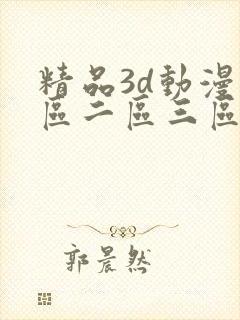 精品3d動漫
區二區三區
郭晨然